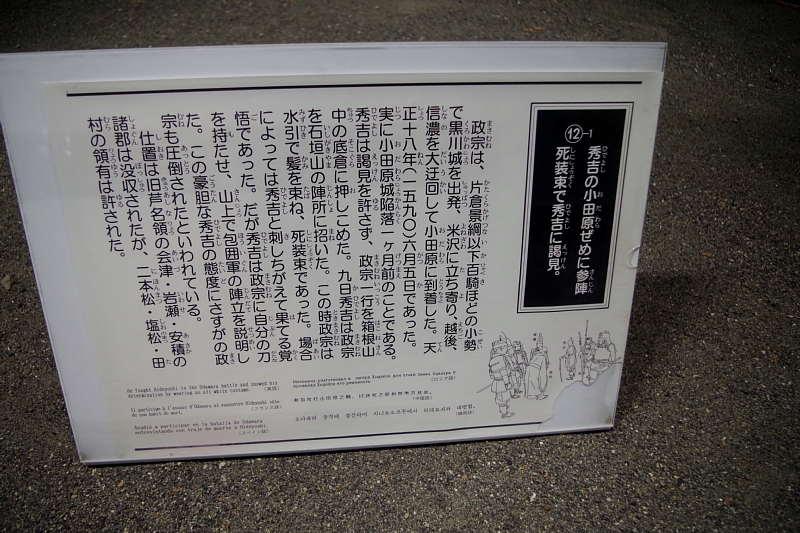 ⑫-1
秀吉の小田原ぜめに参陣
死装束で秀吉に謁見。
政宗は、片倉景綱以下百騎ほどの小勢
で黒川城を出発、米沢に立ち寄り、越後、
信濃を大迂回して小田原に到着した。天
正十八年(一五九〇)六月五日であった。
実に小田原城陥落一ヶ月前のことである。
秀吉は謁見を許さず、政宗一行を箱根山
中の底倉に押しこめた。九日秀吉は政宗
を石垣山の陣所に招いた。この時政宗は
水引で髪を束ね、死装束であった。場合
によっては秀吉と刺しちがえて果てる覚
悟であった。だが秀吉は政宗に自分の刀
を持たせ、山上で包囲軍の陣立を説明し
た。この豪胆な秀吉の態度にさすがの政
宗も圧倒されたといわれている。
仕置は旧芦名領の会津・岩瀬・安積の
諸郡は没収されたが、二本松・塩松・田
村の領有は許された。
He fought Hideyoshi in the Odawara battle and showed his
determination by wearing an all white costume.
(英語)
Il participe à l'assaut d'Odawara et rencontre Hideyoshi vêtu
de son habit de mort.
(フランス語)
Acudió a participar en la batalla de Odawara
entrevistando con traje de muerte a Hideyoshi.
(スペイン語)
(ロシア語)
(中国語)
(韓国語)